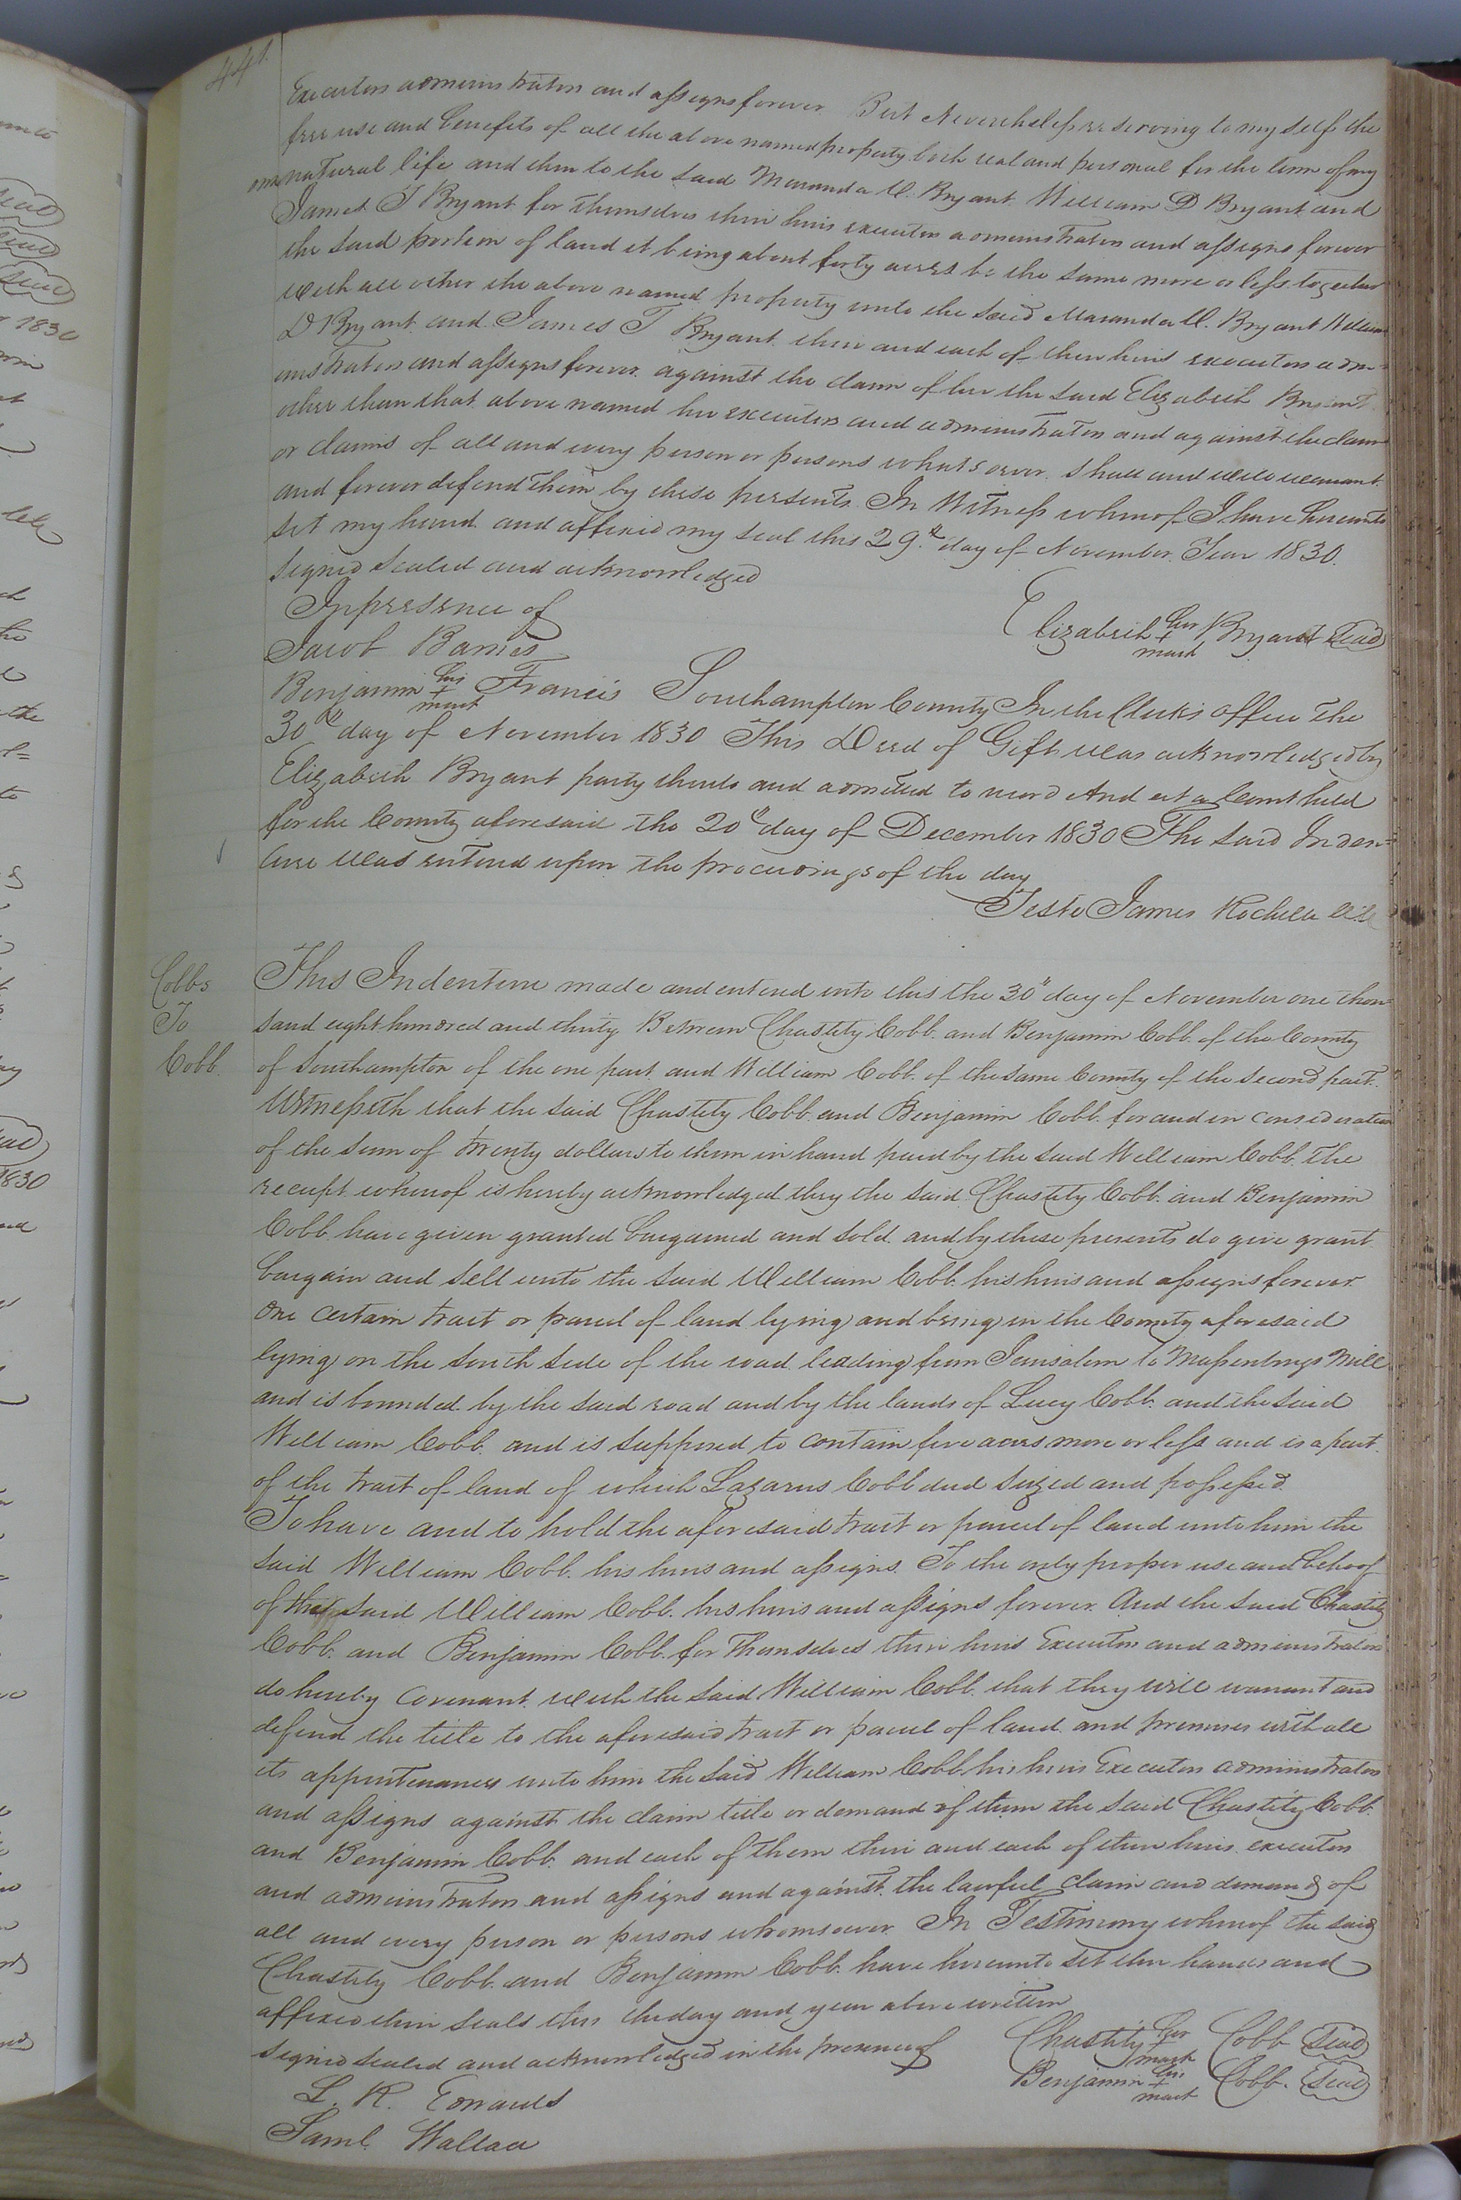 441.
Executors administrators and assigns forever But Nevertheless reserving to my self the
free use and benefits of all the above named property both real and personal for the term of my
natural life and then to the said Maranda U. Bryant William D Bryant and
James T Bryant for themselves their heirs executors administrators and assigns forever
the said portion of land it being about forty acres be the same more or less together
with all other the above named property unto the said Maranda U. Bryant William
D Bryant and James T Bryant their and each of their heirs executors admi-
nistrators and assigns forever against the claim of her the said Elizabeth Bryant
other than that above named her executors and administrators and against the claim
or claims of all and every person or persons whatsoever shall and will warrant
and forever defend them by these presents In Witness whereof I have hereunto
set my hand and affixed my seal this 29th day of November Year 1830.
Signed Sealed and acknowledged
In presence of
Elizabeth her + mark Bryant Seal
Jacob Barnes
Benjamin his + mark Francis
Southampton County In the Clerk's Office The
30th day of November 1830 This Deed of Gift was acknowledged by
Elizabeth Bryant party thereto and admitted to record And at a Court held
for the County aforesaid the 20th day of December 1830 The said Inden=
ture was entered upon the proceedings of the day
Teste James Rochelle
Cobbs
To
Cobb
This Indenture made and entered into this the 30th day of November one thou
sand eight hundred and thirty Between Chastity Cobb. and Benjamin Cobb. of the County
of Southampton of the one part and William Cobb. of the same County of the second part.
Witnesseth that the said Chastity Cobb. and Benjamin Cobb. for and in consideration
of the sum of twenty dollars to them in hand paid by the said William Cobb. the
receipt whereof is hereby acknowledged they the said Chastity Cobb. and Benjamin
Cobb. have given granted bargained and sold and by these presents do give grant
bargain and sell unto the said William Cobb. his heirs and assigns forever
one certain tract or parcel of land lying and being in the County aforesaid
lying on the south side of the road leading from Jerusalem to Massenbugs Mill
and is bounded by the said road and by the lands of Lucy Cobb. and the said
William Cobb. and is supposed to contain five acres more or less and is a part
of the tract of land of which Lazarus Cobb died seized and possessed
To have and to hold the aforesaid tract or parcel of land unto him the
said William Cobb. his heirs and assigns. To the only proper use and behoof
of the said William Cobb. his heirs and assigns forever And the said Chastity
Cobb. and Benjamin Cobb. for themselves their heirs Executors and administrators
do hereby Covenant with the said William Cobb. that they will warrant and
defend the title to the aforesaid tract or parcel of land and premises with all
its appurtenances unto him the said William Cobb. his heirs Executors administrators
and assigns against the claim title or demand of them the said Chastity Cobb.
and Benjamin Cobb. and each of them their and each of their heirs executors
and administrators and assigns and against the lawful claim and demand of
all and every person or persons whomsoever In Testimony whereof the said
Chastity Cobb. and Benjamin Cobb. have hereunto set their hands and
affixed their seals this the day and year above written
Signed sealed and acknowledged in the presence of
Chastity her + mark Cobb Seal
Benjamin his + mark Cobb. Seal
L. R. Edwards
Saml. Wallace